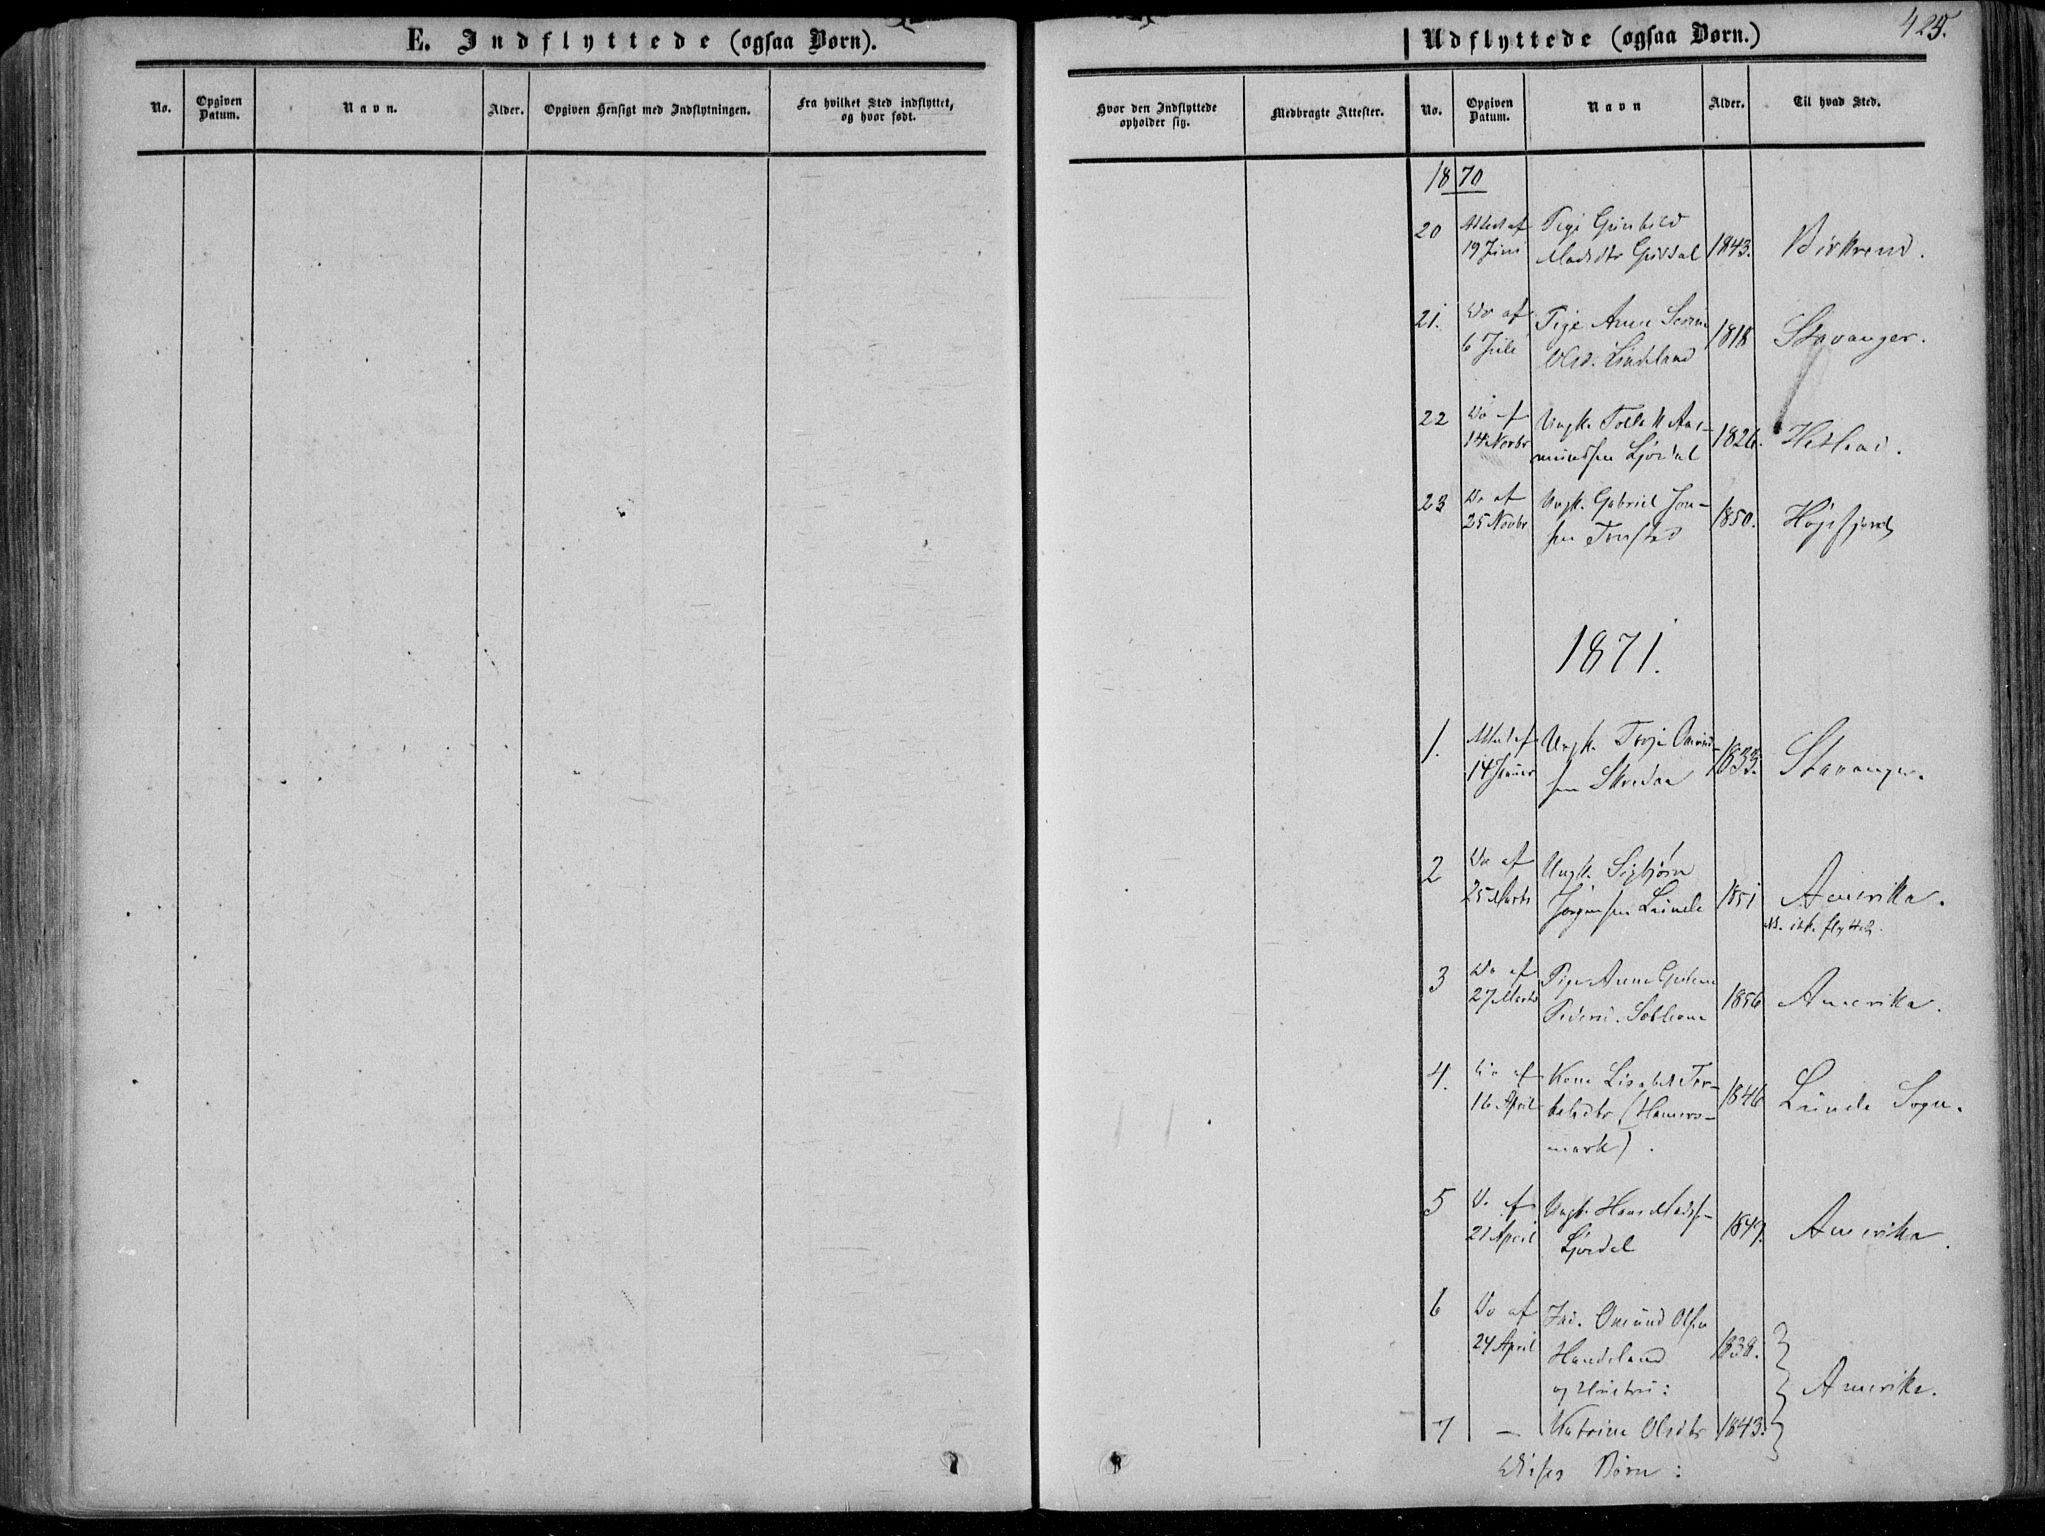 E. Indflyttede (ogsaa Børn).
No.
Opgiven Datum.
Navn.
Alder.
Opgiven Hensigt med Indflytningen.
Fra hvilket Sted indflyttet,
og hvor født.
425.
Udflyttede (ogsaa Børn.)
Hvor den Indflyttede
opholder sig.
Medbragte Attester.
No.
Opgiven Datum.
Navn
Alder.
Til hvad Sted.
1870
20 Attest af Pige Gunhild
19 Juni Madsdtr Gydal 1843. Birkrem.
21. Do af Pige Anne
6 Juli Olsd. Lindland 1818 Stavanger.
22 Do af Ungk. Tollak Aa-
14 Novbr mundsen Gjødal 1826. Hetland.
23 Do af Ungk. Gabriel Jon-
25 Novbr sen 1850. Høgsfjord
1871.
1. Attest af Ungk. Terje Omund-
14 Januar sen Skredaa 1833. Stavanger.
2 Do af Ungk. Sigbjørn
25 Marts Jørgensen Lunde 1851 Amerika.
NB. ikke flyttet.
3 Do af Pige Anne
27 Marts Pedersd. 1856 Amerika.
4. Do af Kone Lisabet Tor-
16 April kelsdtr (Hamers-
mark). 1846 Lunde Sogn.
5 Do af Ungk. Hans Madsen
21 April 1849. Amerika.
6 Do af Omund Olsen
24 April Handeland 1838.
og Hustru: Amerika.
7 — Katrine Olsdtr 1843.
Disses Børn: